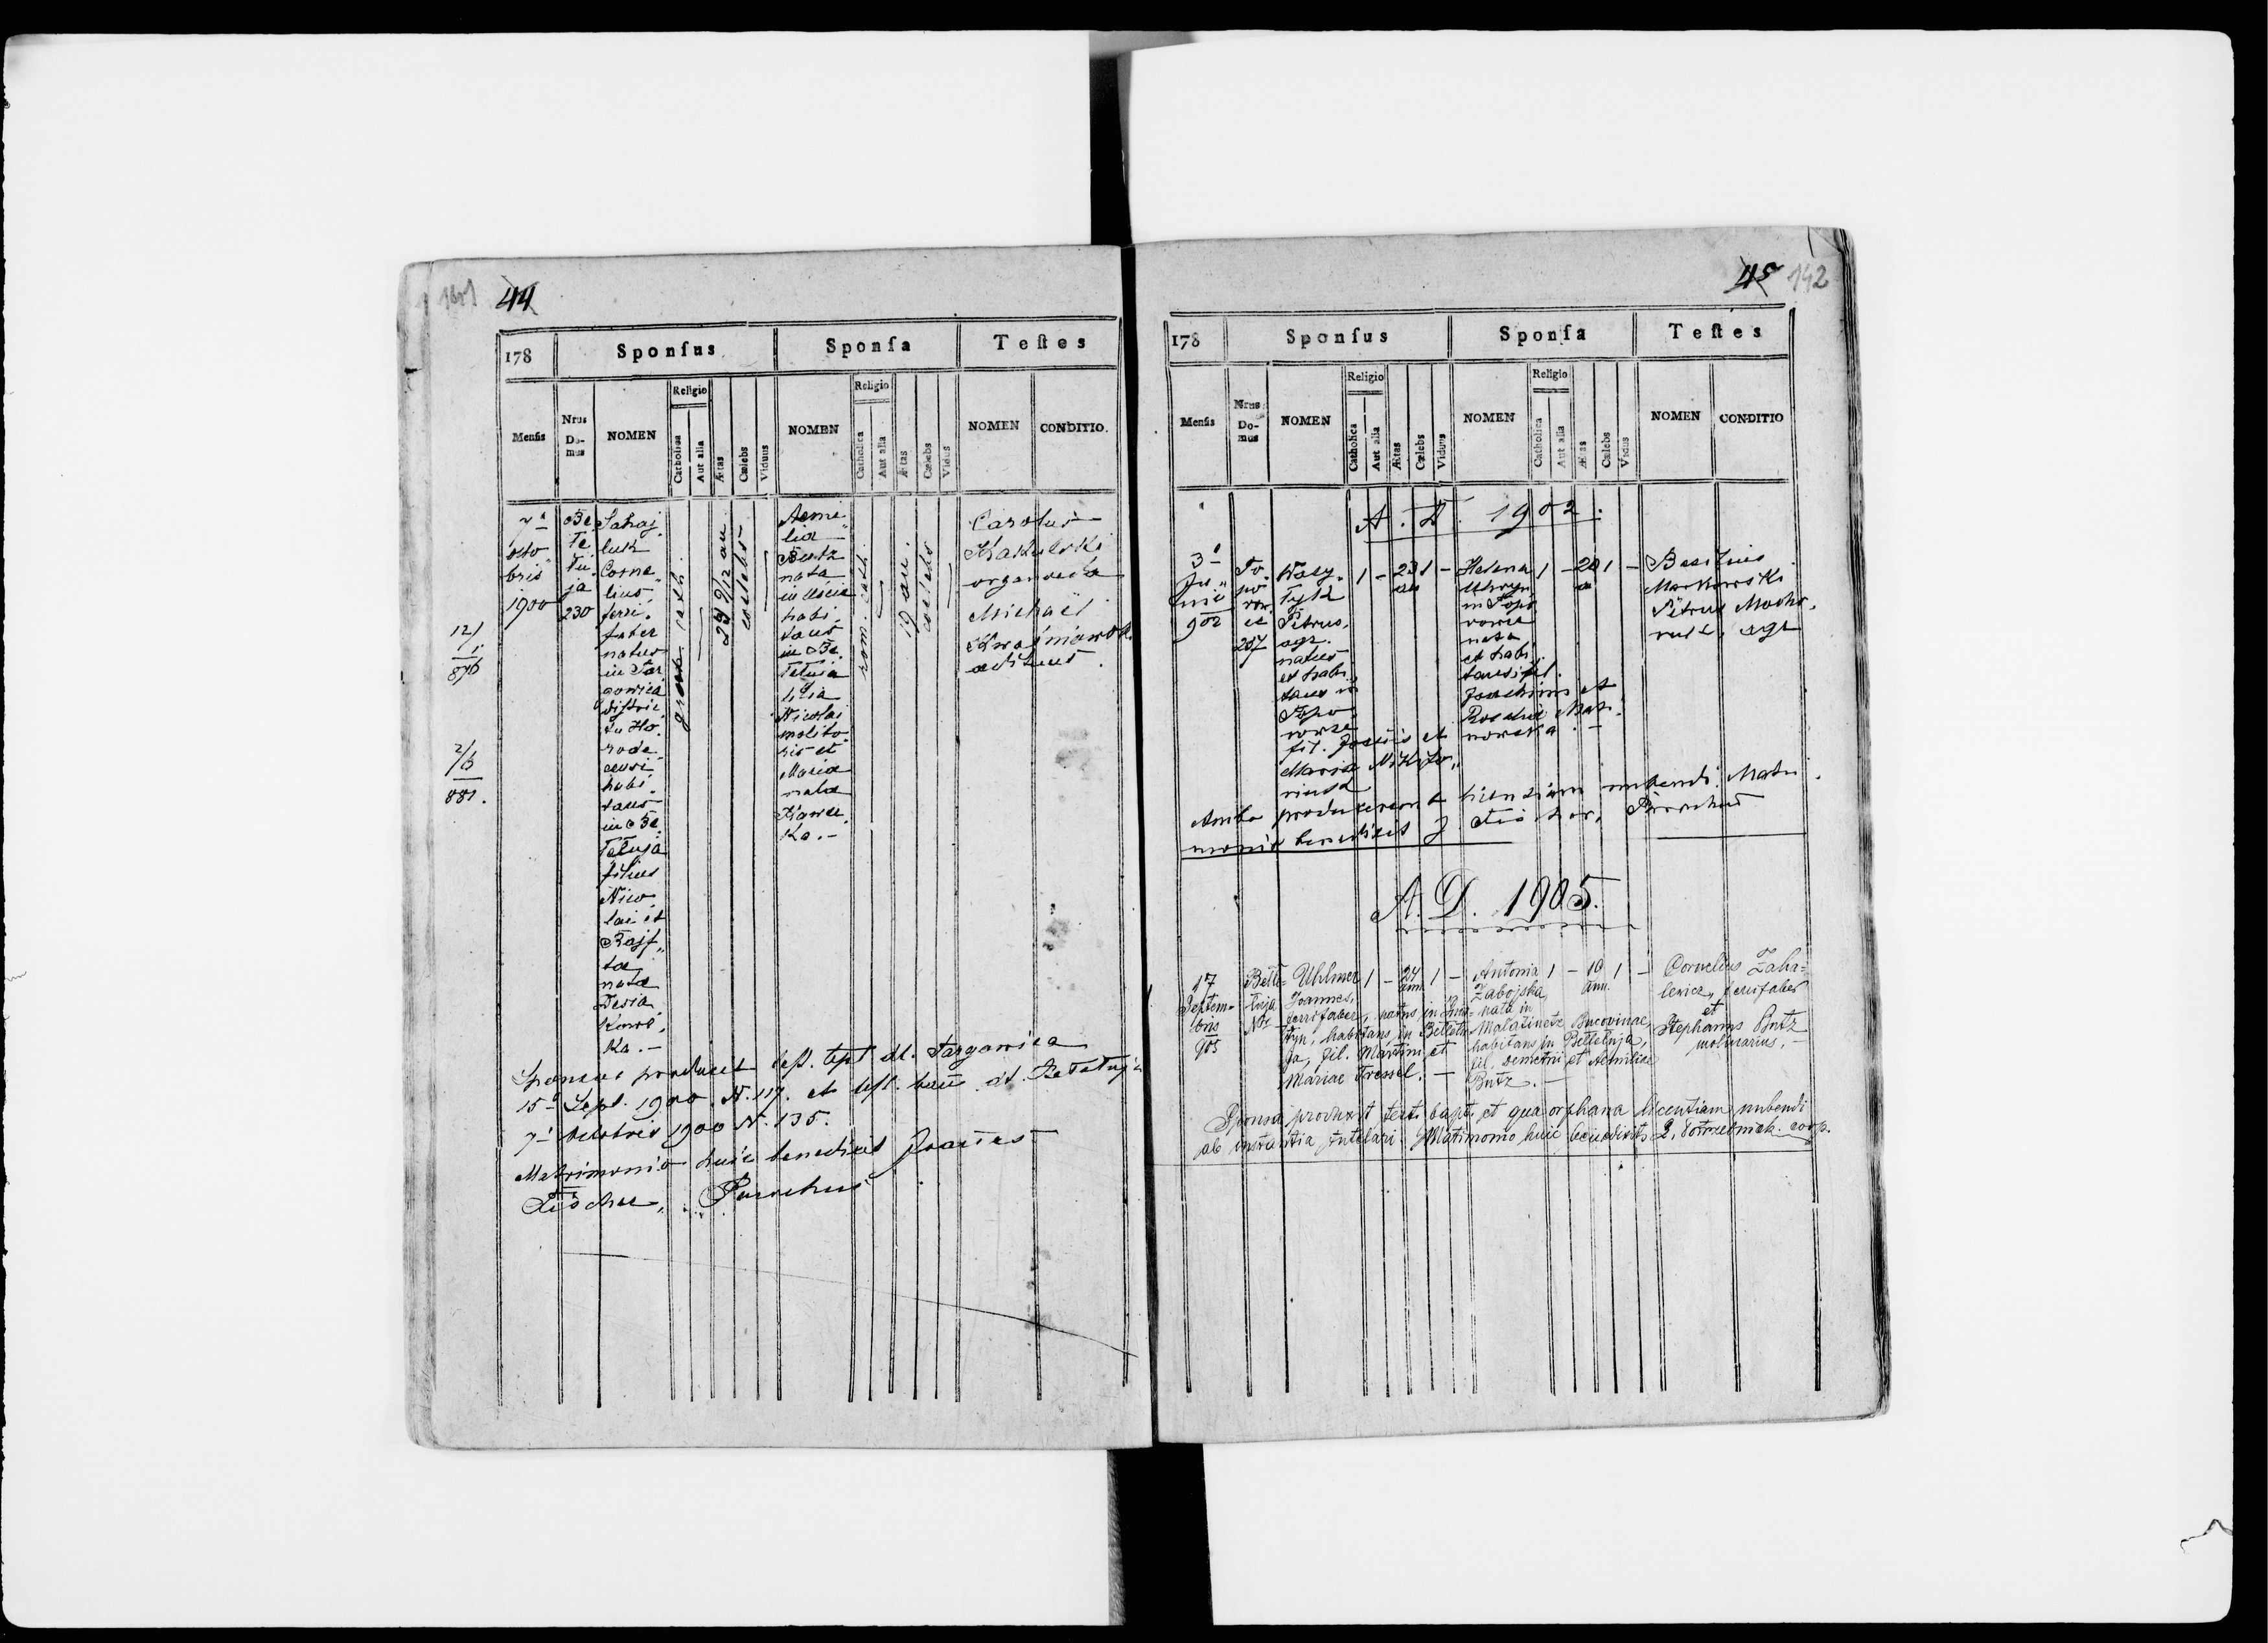 44
178
Sponſus
Sponſa
Teſtes
Menſis
Nrus Do- mus
NOMEN
Religio
Catholica
Aut alia
Ætas
Cælebs
Viduus
NOMEN
Religio
Catholica
Aut alia
Ætas
Cælebs
Vidus
NOMEN
CONDITIO.
7a
octo
bris
1900
Be
Te
tu.
ja
230
12/
1.
876
2/
6
881.
Sahaj
luk
Corne„
lius,
ferri.
faber
natus
in Tar
gowica
distric.
tu Ho.
rode.
censi
habi.
tans
in Be.
Tetuja
filius
Nico.
lai et
Rajf„
ta
nata
Kows.
ka.–
graec. cath.
23 9/12 an
coelebs
Aeme„
lia
Butz
nata
in Uscie
habi.
tans
in Be.
Tetuja
filia
Nicolai
molito.
ris et
Maria
nata
Kawec.
ka.–
rom. cath.
19 an.
coelebs
Carolus
Kakulski
organoeda
Michaël
aedituus.
Sponsus producit test. bapt. dd. Targowica
15a Sept. 1900 N. 117. et test. bann. dd. Betetuja
7a Octobris 1900 N. 135.
Matrimonio huic benedixit Joannes
Parochus
45 142
178
Sponſus
Sponſa
Teſtes
Menſis
Nrus Do- mus
NOMEN
Religio
Catholica
Aut alia
Ætas
Cælebs
Viduus
NOMEN
Religio
Catholica
Aut alia
Ætas
Cælebs
Vidus
NOMEN
CONDITIO
A. D. 1902.
3a
Ju„
nii
902
To.
po
row.
ce
207
Wasy„
lyk
Petrus,
agr.
natus
et habi.
tans in
Topo
rowce
fil. Joannis et
Maria Nikifo„
1 – 23 1 –
an
Helena
in Topo
rowce
nata
et habi.
tans, fil.
Joachimi et
1 – 20 1 –
a
Basilius
Markowski
Petrus Mocho.
ruk, agr
Ambo produxerunt licentiam nubendi. Matri.
monio benedixit J. Parochus
A. D. 1905.
17
Septem-
bris
905
Bette-
tuja
Nr
Uhlmer
Joannes,
ferrifaber, natus in Snia-
tyn, habitans in Bettetu-
ja, fil. Martini et
Mariae Fressel. –
1 – 24 1 –
ann.
Antonia
Zabojska,
nata in
Malatinetz Bucovinae,
habitans in Bettetuja,
fil. Demetri et Aemiliae
Butz. –
1 – 19 1 –
ann.
Cornelius Zaha=
lewicz, ferrifaber
et
Stephanus Butz
molinarius. –
Sponsa produxit test. bapt. et qua orphana licentiam nubendi
ab instantia tutelari. Matrimonio huic benedixit coop.